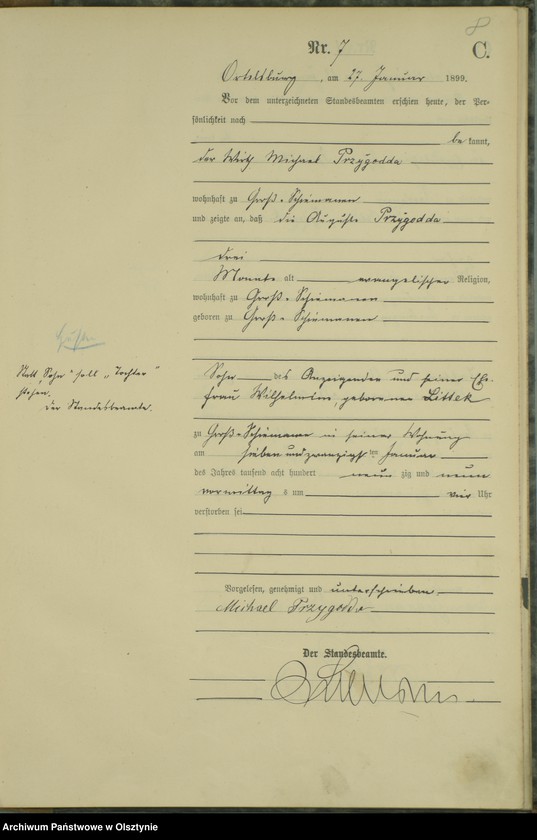 8
Nr. 7
C.
Ortelsburg, am 27. Januar 1899.
Vor dem unterzeichneten Standesbeamten erschien heute, der Per-
sönlichkeit nach
be kannt,
der Wirth Michael Przygodda
wohnhaft zu Groß-Schiemanen
und zeigte an, daß die Auguste Przygodda
drei
Monate alt evangelischer Religion,
wohnhaft zu Groß-Schiemanen
geboren zu Groß-Schiemanen
Statt "Sohn" soll "Tochter"
stehen.
Der Standesbeamte.
Sohn des Anzeigenden und seiner Ehe-
frau Wilhelmine, geborenen Littek
zu Groß-Schiemanen in seiner Wohnung
am sieben und zwanzigsten Januar
des Jahres tausend acht hundert neun zig und neun
vormittag s um vier Uhr
verstorben sei
Vorgelesen, genehmigt und unterschrieben
Michael Przygodda
Der Standesbeamte.
Archiwum Państwowe w Olsztynie